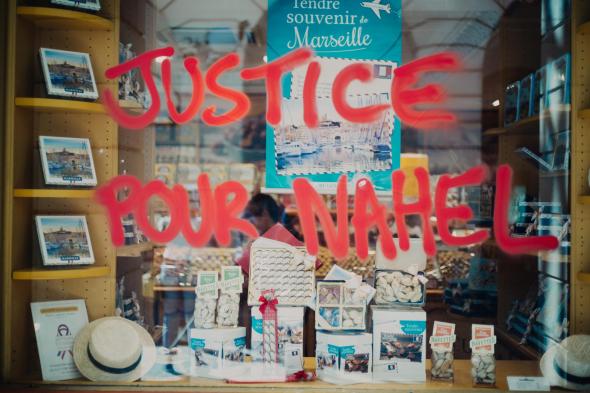 Tendre
souvenir de
Marseille
JUSTICE
POUR NAHEL